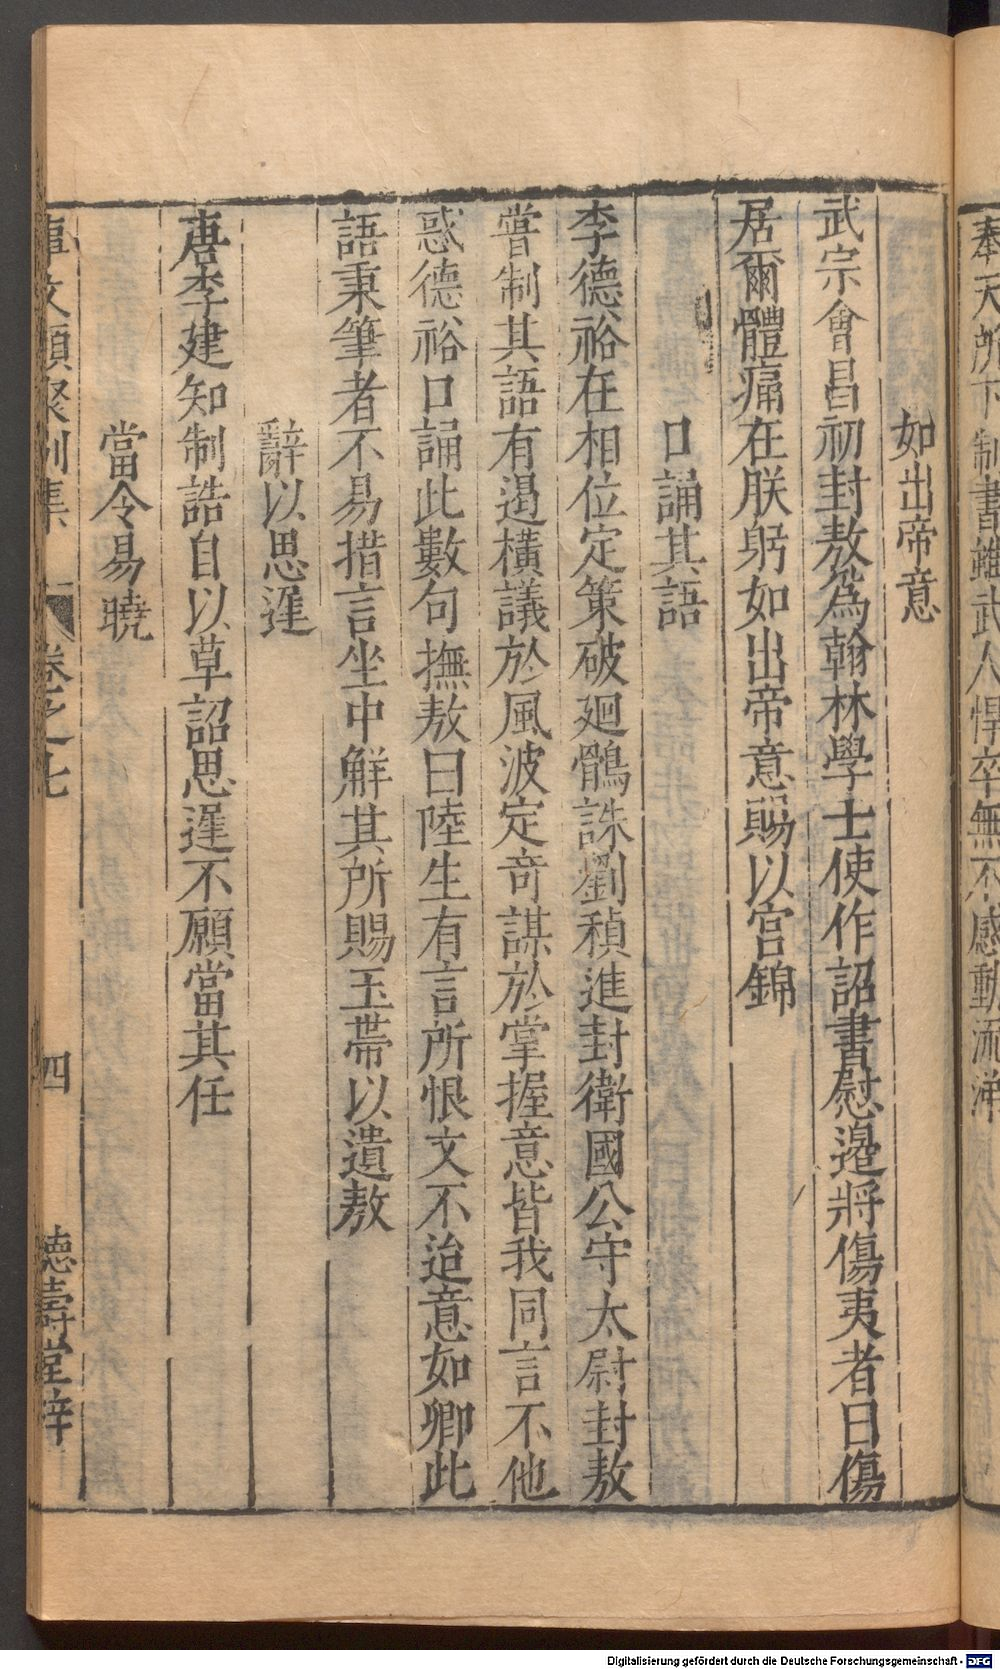 奉天所下制書雖武人悍卒無不感動流涕
如出帝意
武宗會昌初封敖爲翰林學士使作詔書慰邉將傷夷者曰傷
居爾體痛在朕躬如出帝意賜以宮錦
口誦其語
李德裕在相位定策破廻鶻誅劉稹進封衛國公守太尉封敖
嘗制其語有遏橫議於風波定竒謀於掌握意皆我同言不他
惑德裕口誦此數句撫敖曰陸生有言所恨文不迨意如卿此
語秉筆者不易措言坐中觧其所賜玉帶以遺敖
辭以思遲
唐李建知制誥自以草詔思遲不願當其任
當令易曉
事文類聚別集
卷之七
四
德壽堂梓
Digitalisierung gefördert durch die Deutsche Forschungsgemeinschaft - DFG